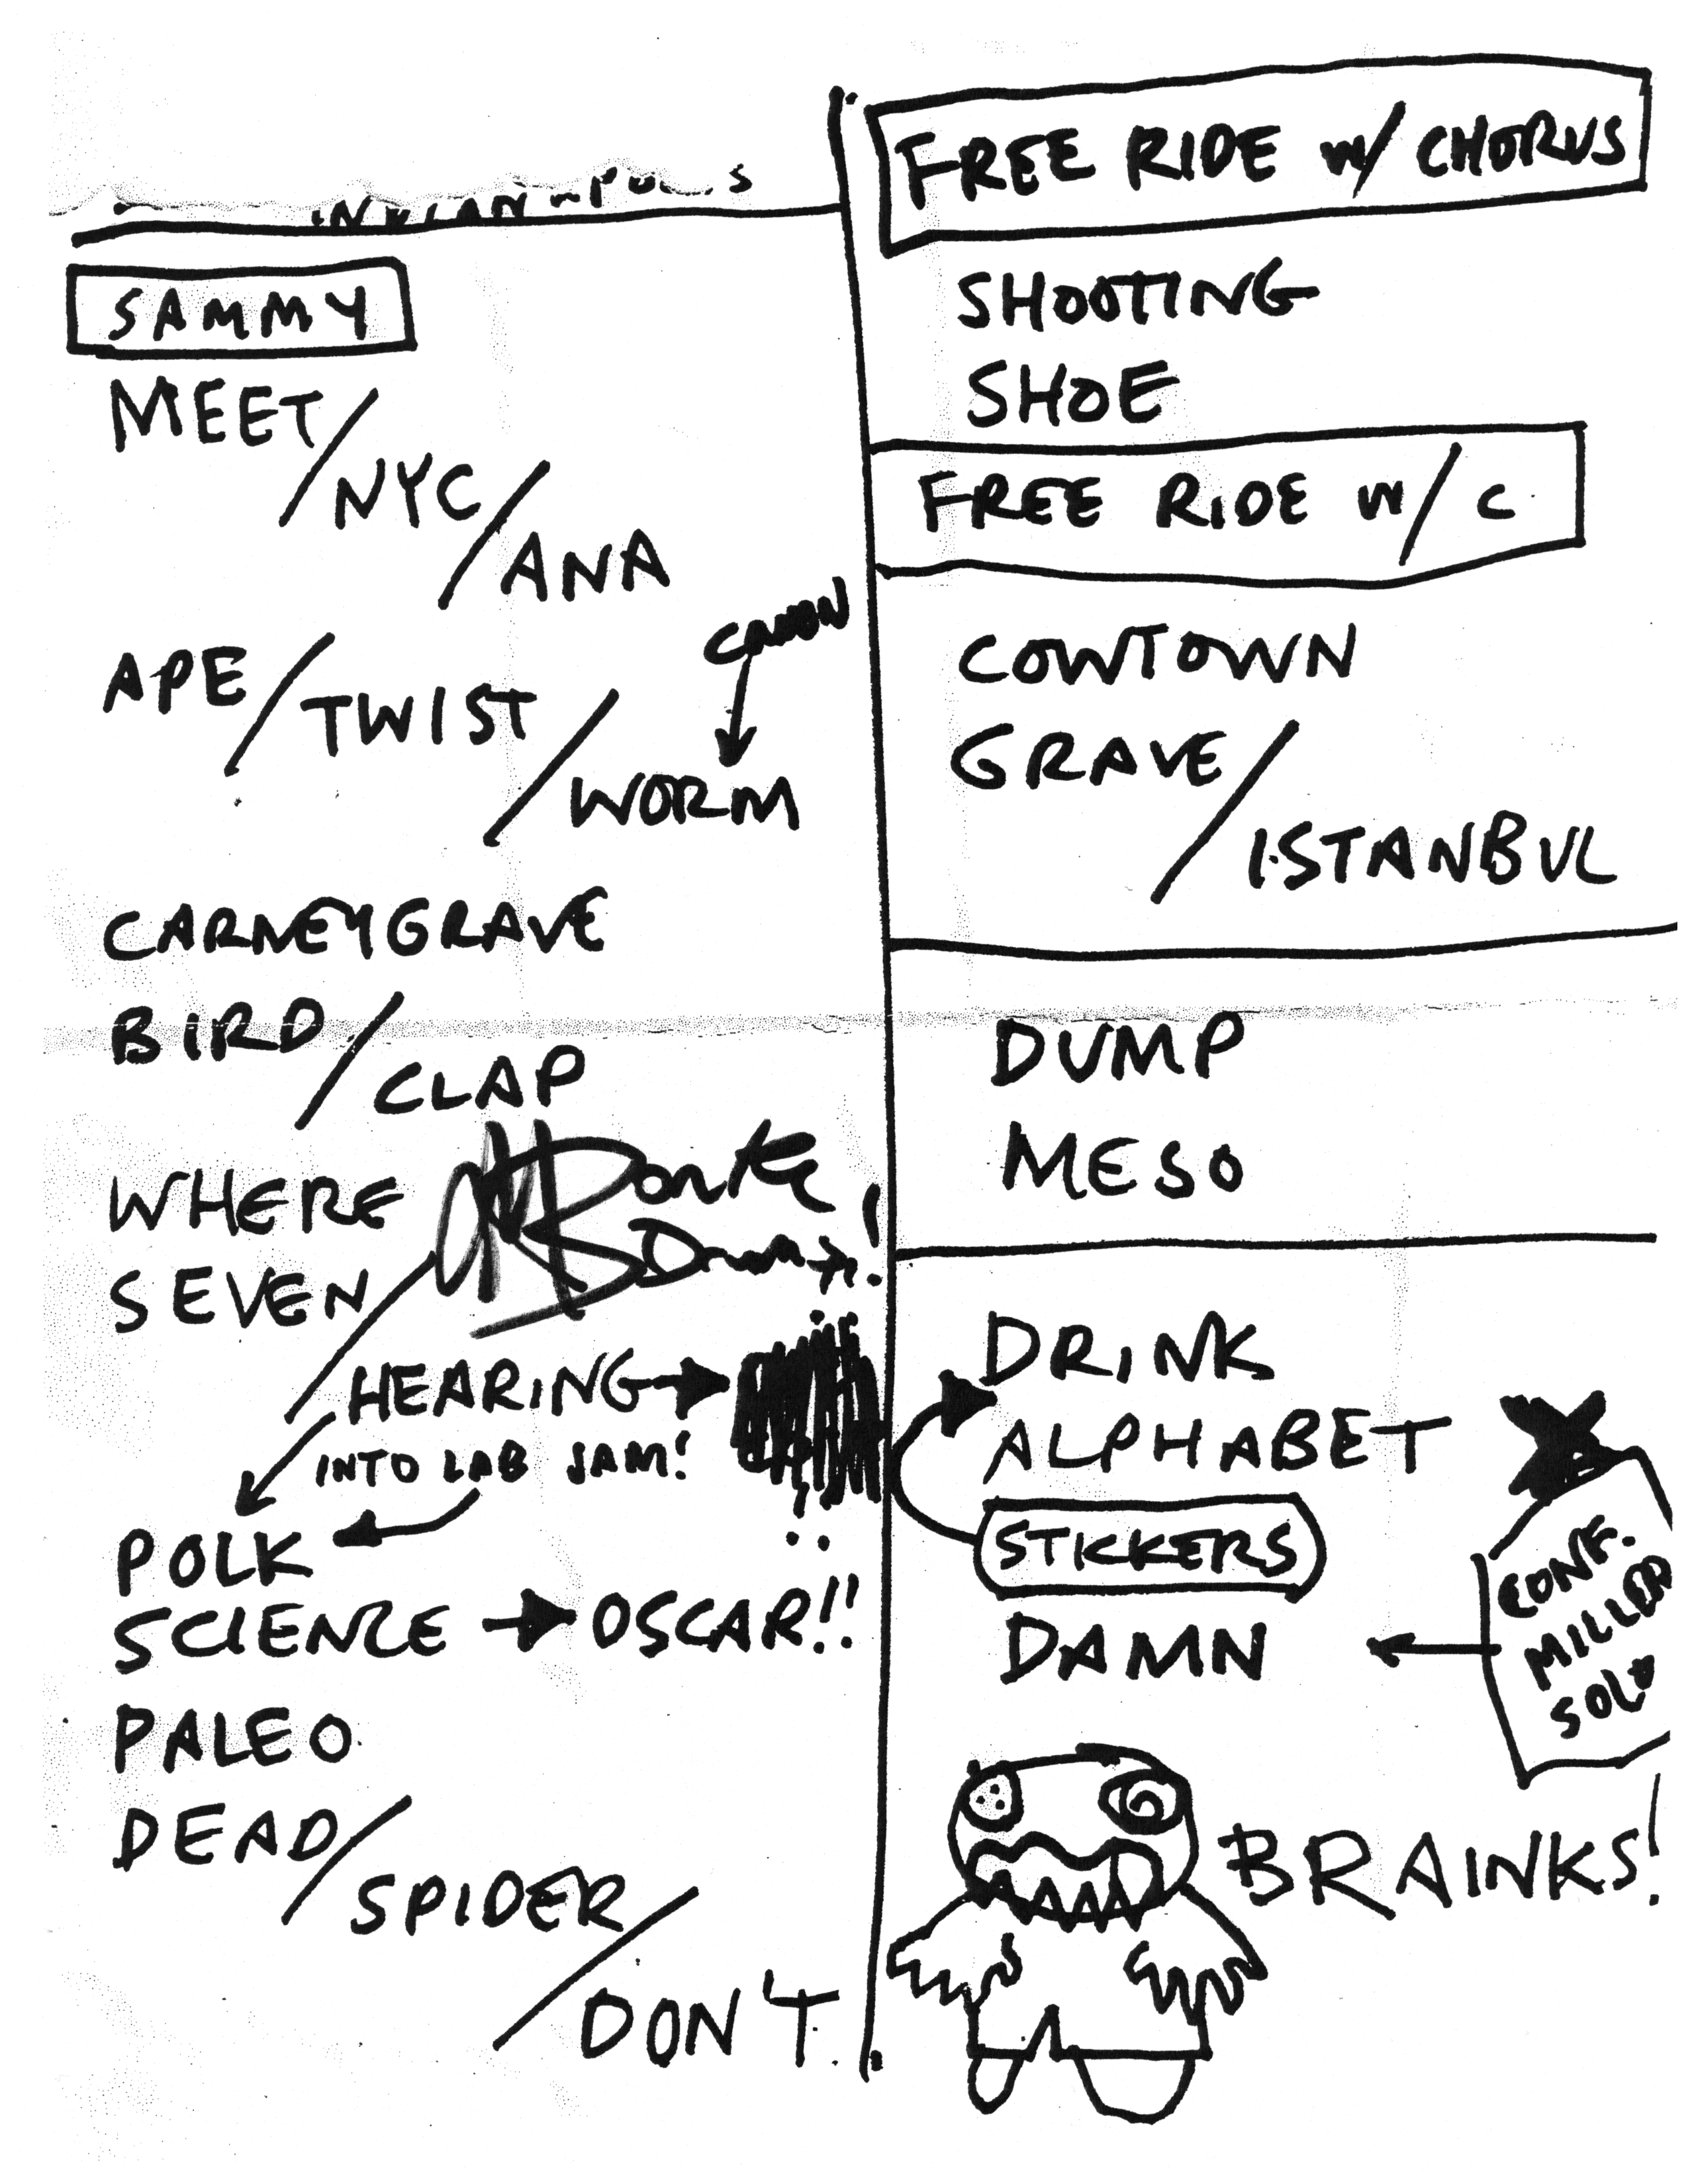 SAMMY
MEET/NYC/ANA
APE/TWIST/WORM
CANON
CARNEYGRAVE
BIRD/CLAP
WHERE
SEVEN
HEARING
INTO LAB JAM!
POLK
SCIENCE → OSCAR!!
PALEO
DEAD/SPIDER/DON'T
FREE RIDE w/ CHORUS
SHOOTING
SHOE
FREE RIDE w/ C
COWTOWN
GRAVE/ISTANBUL
DUMP
MESO
DRINK
ALPHABET
STICKERS
DAMN
CONF.
MILLER
SOLO
BRAINKS!